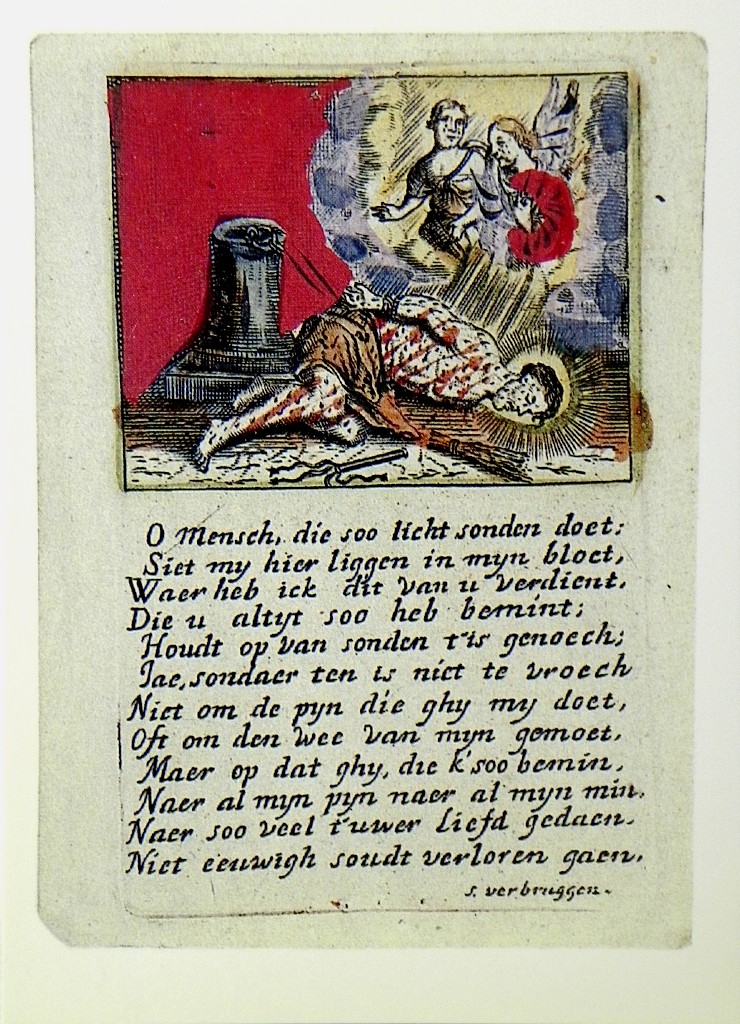 O Mensch, die soo licht sonden doet:
Siet my hier liggen in myn bloet,
Waer heb ick dit van u verdient,
Die u altyt soo heb bemint;
Houdt op van sonden t'is genoech;
Jae, sondaer ten is niet te vroech
Niet om de pyn die ghy my doet,
Oft om den wee van myn gemoet,
Maer op dat ghy, die k'soo bemin,
Naer al myn pyn naer al myn min,
Naer soo veel t'uwer liefd gedaen,
Niet eeuwigh soudt verloren gaen.
s. verbruggen.